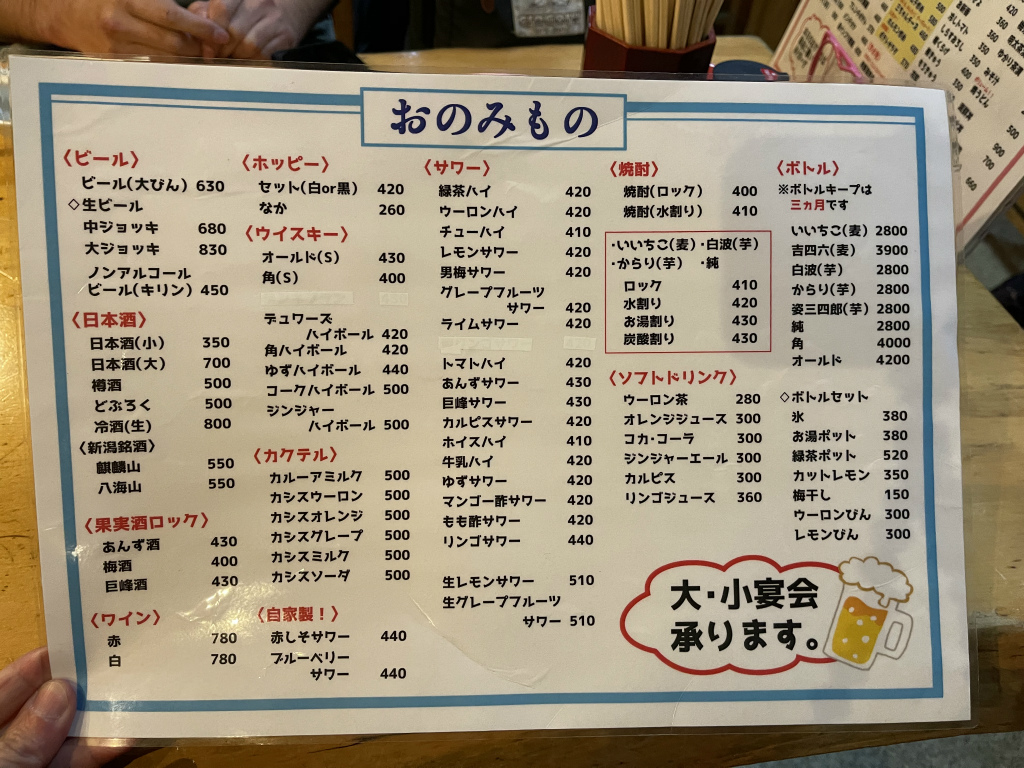 おのみもの
〈ビール〉
ビール(大びん) 630
◇生ビール
中ジョッキ 680
大ジョッキ 830
ノンアルコール
ビール(キリン) 450
〈日本酒〉
日本酒(小) 350
日本酒(大) 700
樽酒 500
どぶろく 500
冷酒(生) 800
〈新潟銘酒〉
麒麟山 550
八海山 550
〈果実酒ロック〉
あんず酒 430
梅酒 400
巨峰酒 430
〈ワイン〉
赤 780
白 780
〈ホッピー〉
セット(白or黒) 420
なか 260
〈ウイスキー〉
オールド(S) 430
角(S) 400
デュワーズ
ハイボール 420
角ハイボール 420
ゆずハイボール 440
コークハイボール 500
ジンジャー
ハイボール 500
〈カクテル〉
カルーアミルク 500
カシスウーロン 500
カシスオレンジ 500
カシスグレープ 500
カシスミルク 500
カシスソーダ 500
〈自家製！〉
赤しそサワー 440
ブルーベリー
サワー 440
〈サワー〉
緑茶ハイ 420
ウーロンハイ 420
チューハイ 410
レモンサワー 420
男梅サワー 420
グレープフルーツ
サワー 420
ライムサワー 420
トマトハイ 420
あんずサワー 430
巨峰サワー 430
カルピスサワー 420
ホイスハイ 410
牛乳ハイ 420
ゆずサワー 420
マンゴー酢サワー 420
もも酢サワー 420
リンゴサワー 440
生レモンサワー 510
生グレープフルーツ
サワー 510
〈焼酎〉
焼酎(ロック) 400
焼酎(水割り) 410
・いいちこ(麦)・白波(芋)
・からり(芋) ・純
ロック 410
水割り 420
お湯割り 430
炭酸割り 430
〈ソフトドリンク〉
ウーロン茶 280
オレンジジュース 300
コカ・コーラ 300
ジンジャーエール 300
カルピス 300
リンゴジュース 360
〈ボトル〉
※ボトルキープは
三ヵ月です
いいちこ(麦) 2800
吉四六(麦) 3900
白波(芋) 2800
からり(芋) 2800
姿三四郎(芋) 2800
純 2800
角 4000
オールド 4200
◇ボトルセット
氷 380
お湯ポット 380
緑茶ポット 520
カットレモン 350
梅干し 150
ウーロンびん 300
レモンびん 300
大・小宴会
承ります。